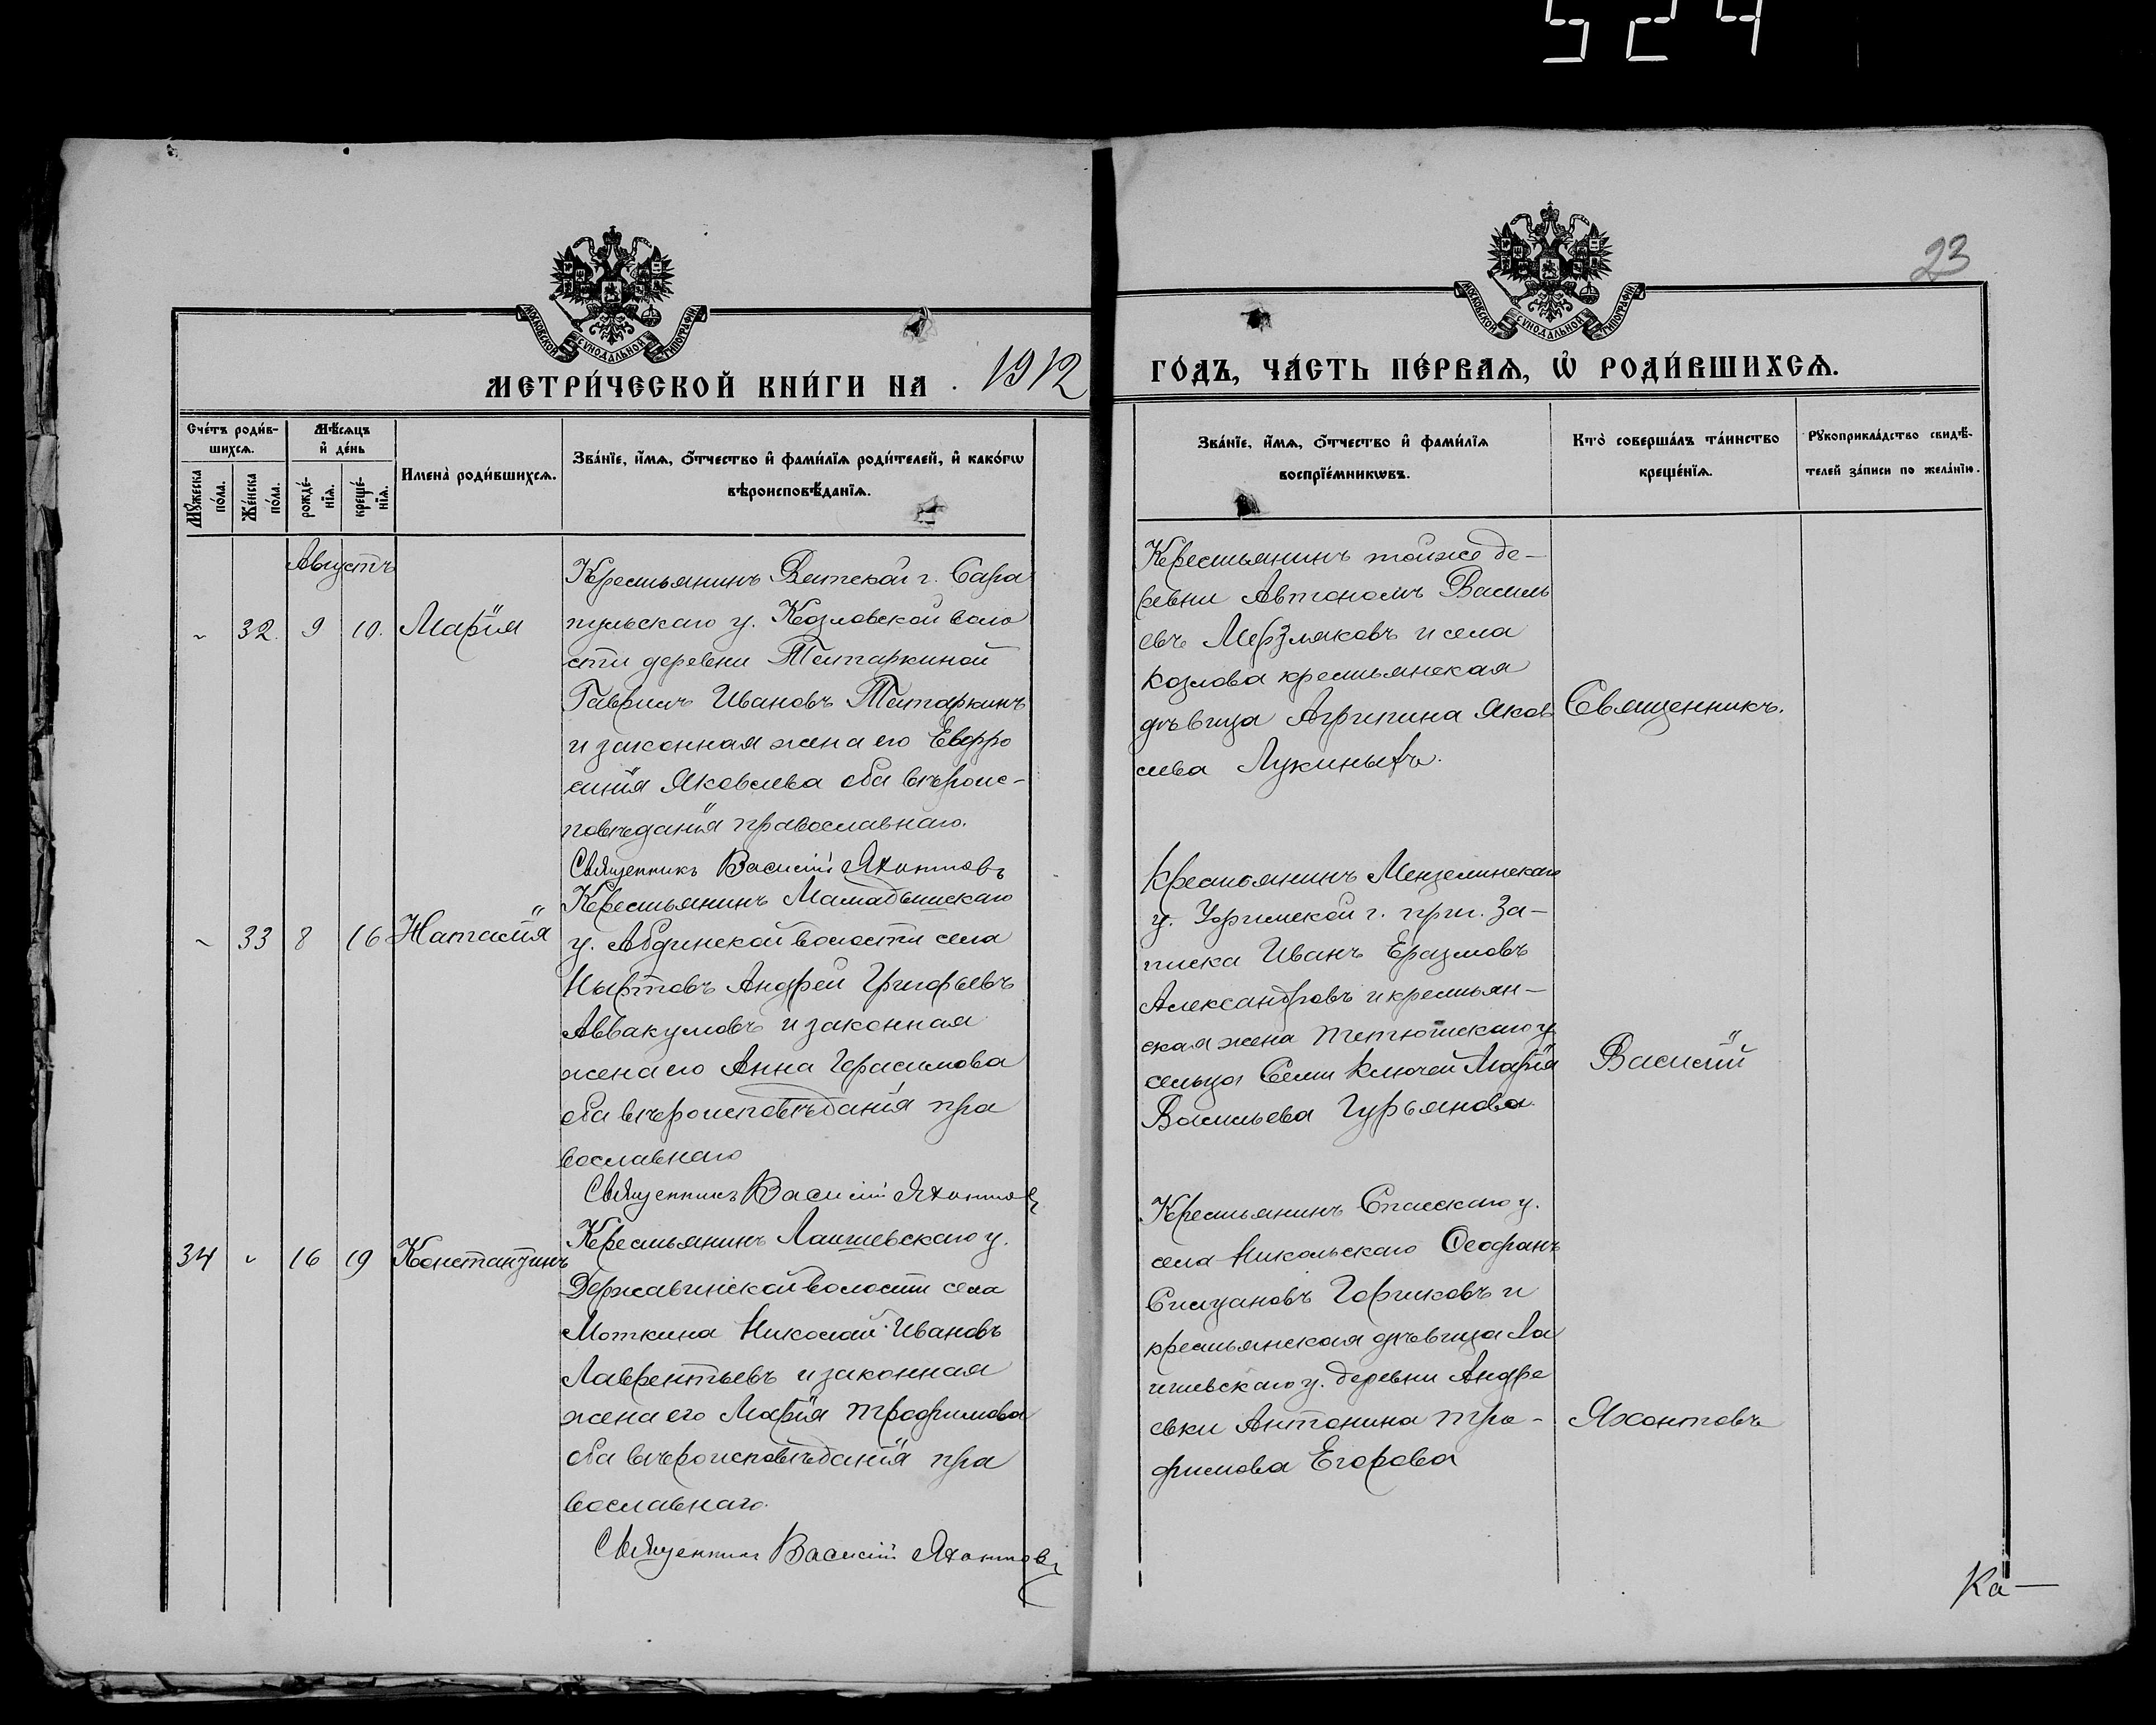 524
23
МОСКОВСКОЙ СѴНОДАЛЬНОЙ ТИПОГРАФІИ
МОСКОВСКОЙ СѴНОДАЛЬНОЙ ТИПОГРАФІИ
МЕТРИ́ЧЕСКОЙ КНИ́ГИ НА 1912
ГО́ДЪ, ЧА́СТЬ ПЕ́РВАѦ, Ѡ҆ РОДИ́ВШИХСѦ.
Сче́тъ роди́в-
шихсѧ.
Мꙋ́жеска по́ла.
Же́нска по́ла.
Мѣ́сѧцъ
и҆ де́нь
рожде́-
нїѧ.
креще́-
нїѧ.
Имена̀ роди́вшихсѧ.
Зва́нїе, и҆́мѧ, ѻ҆́тчество и҆ фами́лїѧ роди́телей, и҆ како́гѡ
вѣроисповѣ́данїѧ.
Зва́нїе, и҆́мѧ, ѻ҆́тчество и҆ фами́лїѧ
воспрїе́мникѡвъ.
Кто̀ соверша́лъ та́инство
креще́нїѧ.
Рꙋкоприкла́дство свидѣ́-
телей за́писи по жела́нїю.
Августъ
~ 32 9 10. Марія
Крестьянинъ Вятской г. Сара
пульскаго у. Козловской воло
сти деревни Татаркиной
Гавріилъ Ивановъ Татаркинъ
и законная жена его Евфро
синія Яковлева оба вѣроис-
повѣданія православнаго.
Священникъ Василій Яхонтовъ
Крестьянинъ тойже де-
ревни Автономъ Василь
евъ Мерзляковъ и села
Козлова крестьянская
дѣвица Агрипина Яков
лева Лукиныхъ.
Священникъ.
~ 33 8 16 Наталія
Крестьянинъ Мамадышскаго
у. Абдинской волости села
Ныртовъ Андрей Григорьевъ
Аввакумовъ и законная
жена его Анна Герасимова
оба вѣроисповѣданія пра
вославнаго
Священникъ Василій Яхонтовъ
Крестьянинъ Мензелинскаго
у. Уфимской г. приг. За-
инска Иванъ Еразмовъ
Александровъ и крестьян-
ская жена Тетюшскаго у
сельца Семи Ключей Марія
Васильева Гурьянова.
Василій
34 ~ 16 19 Константинъ
Крестьянинъ Лаишевскаго у.
Державинской волости села
Моткина Николай Ивановъ
Лаврентьевъ и законная
жена его Марія Трофимова
оба вѣроисповѣданія пра
вославнаго.
Священникъ Василій Яхонтовъ
Крестьянинъ Спасскаго у.
села Никольскаго Ѳеофанъ
Силуановъ Горшковъ и
крестьянская дѣвица Ла
ишевскаго у. деревни Андре
евки Антонина Тро-
фимова Егорова
Яхонтовъ
Ка—